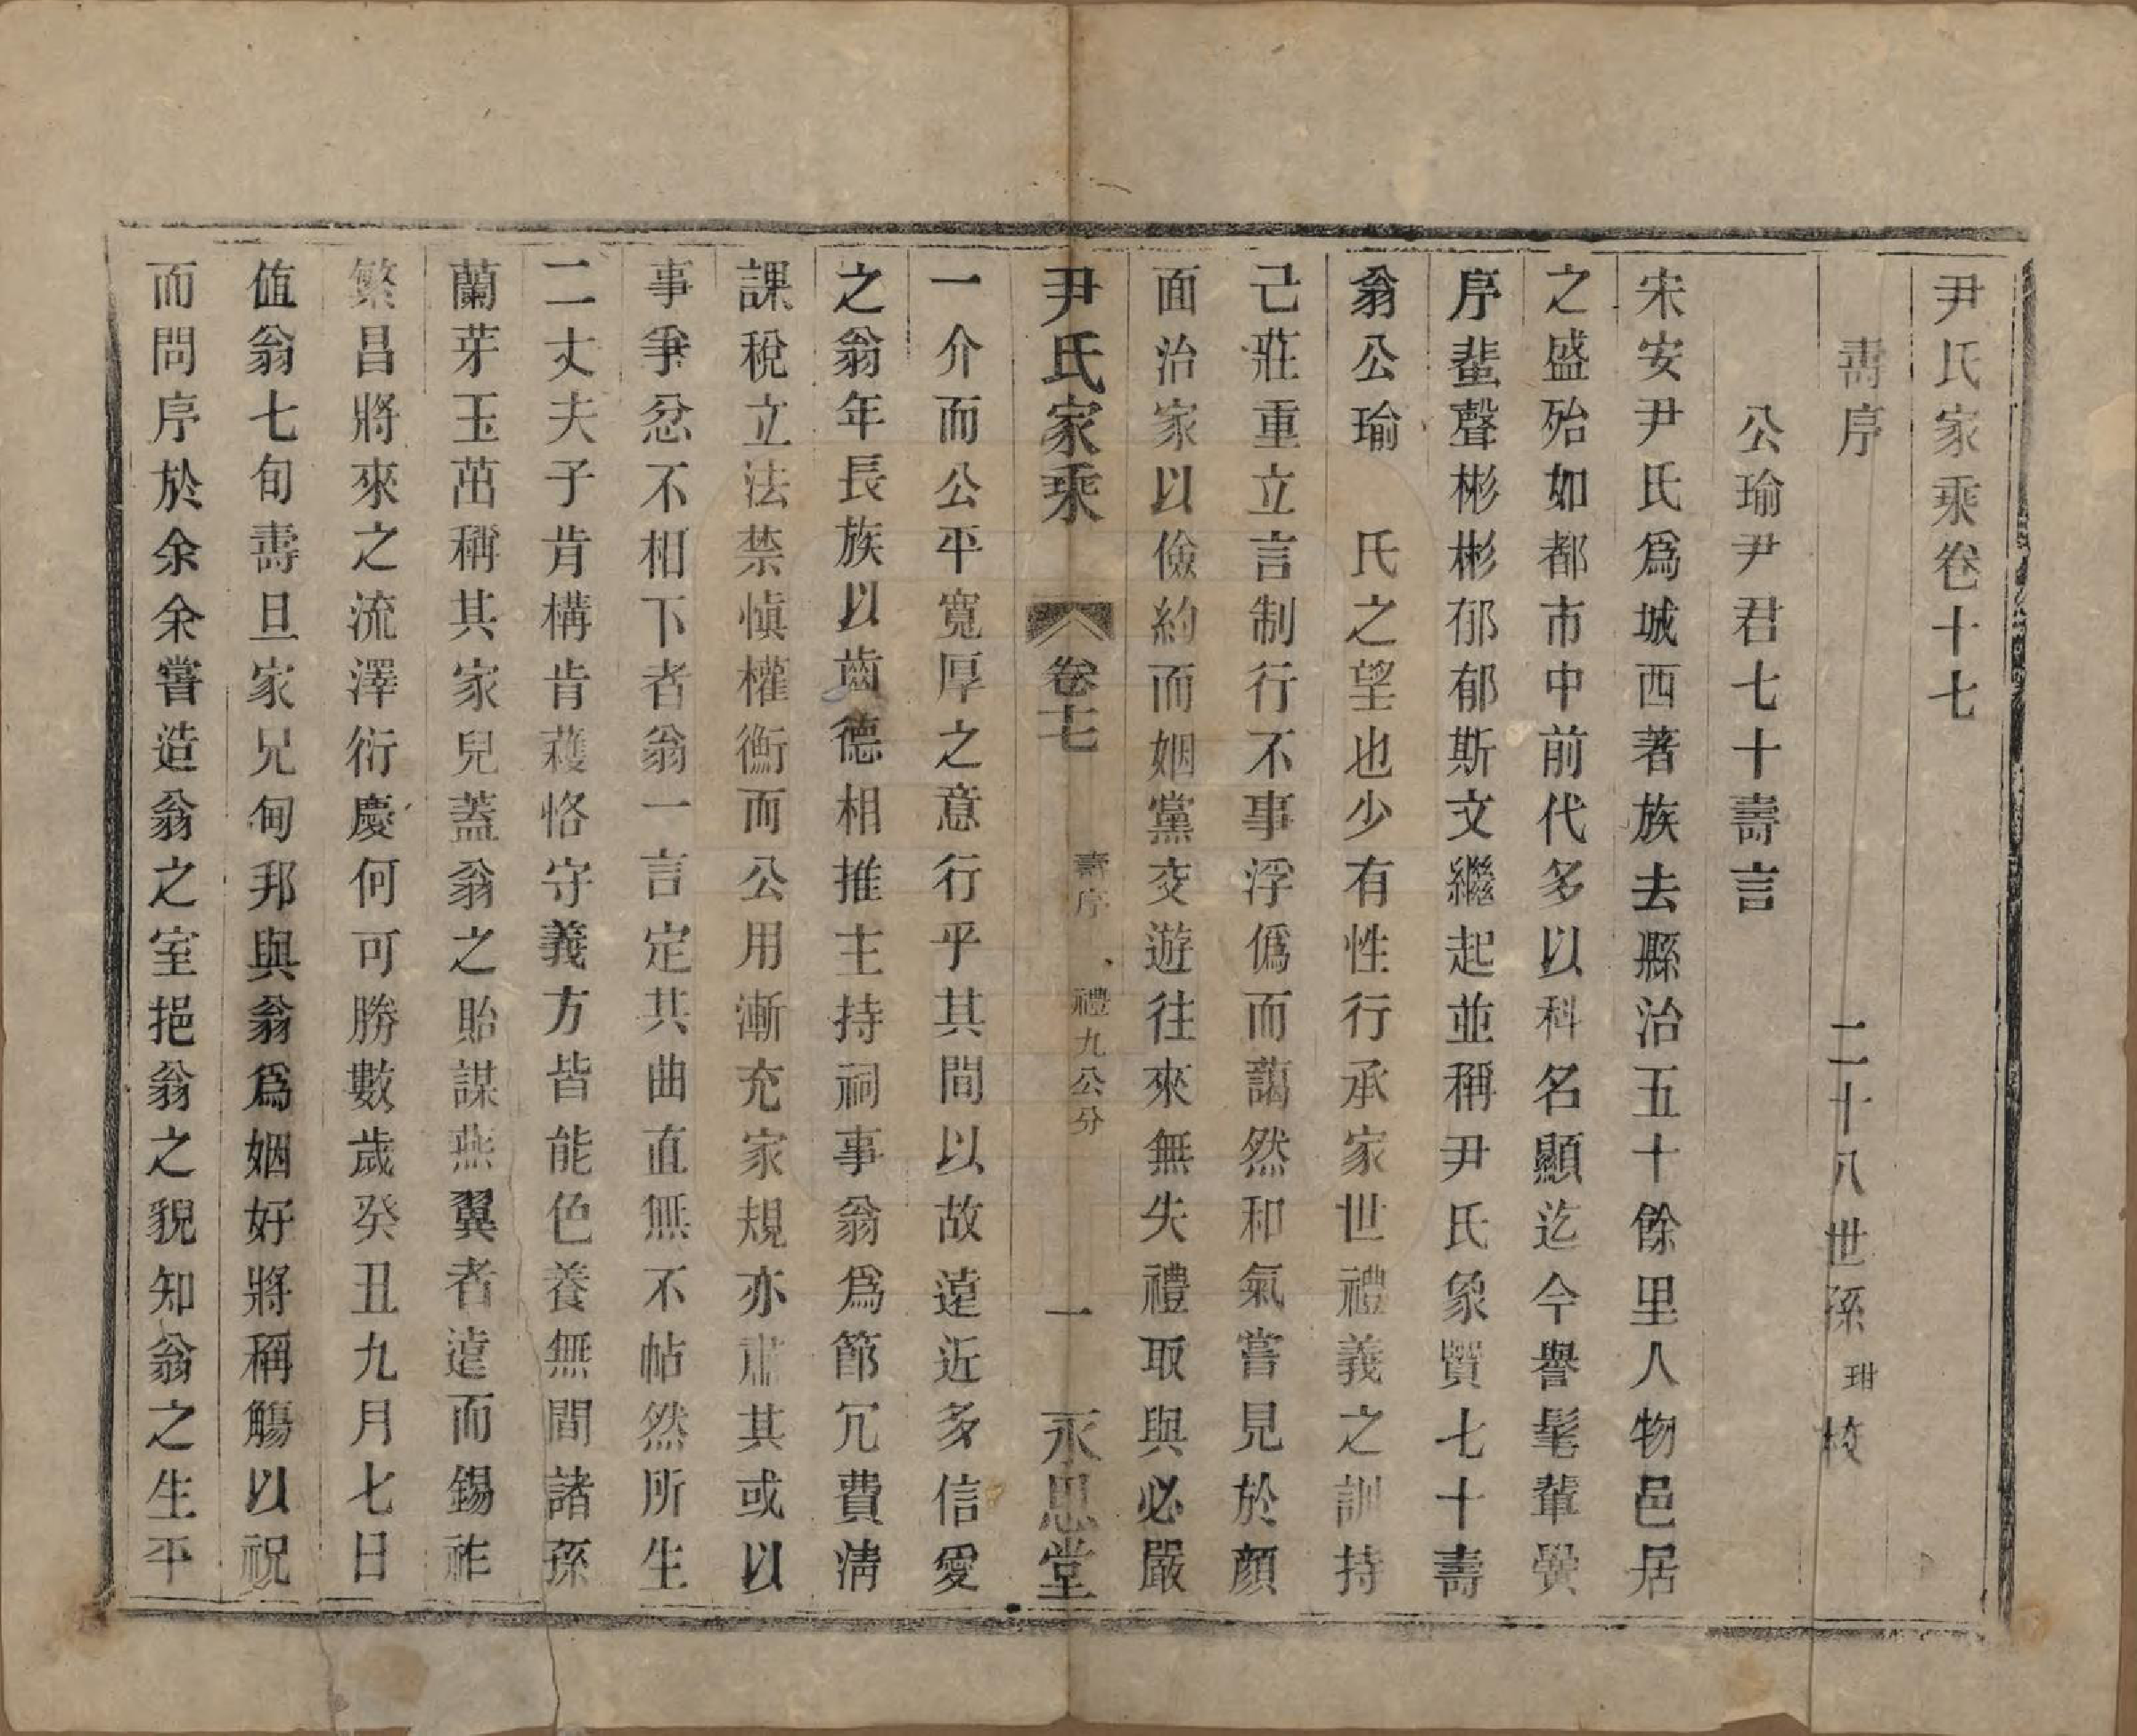 尹氏家乘卷十七
壽序　二十八世孫玵校
公瑜尹君七十壽言
宋安尹氏爲城西著族去縣治五十餘里人物邑居
之盛殆如都市中前代多以科名顯迄今譽髦輩黌
序蜚聲彬彬郁郁斯文繼起並稱尹氏象賢七十壽
翁公瑜　氏之望也少有性行承家世禮義之訓持
己莊重立言制行不事浮僞而藹然和氣嘗見於顏
面治家以儉約而姻黨交遊往來無失禮取與必嚴
尹氏家乘　卷十七　壽序　禮九公分　一　永思堂
一介而公平寬厚之意行乎其間以故遠近多信愛
之翁年長族以齒德相推主持祠事翁爲節冗費清
課稅立法禁愼權衡而公用漸充家規亦肅其或以
事爭忿不相下者翁一言定其曲直無不帖然所生
二丈夫子肯構肯穫恪守義方皆能色養無間諸孫
蘭芽玉茁稱其家兒蓋翁之貽謀燕翼者遠而錫祚
繁昌將來之流澤衍慶何可勝數歲癸丑九月七日
值翁七旬壽旦家兄甸邦與翁爲姻好將稱觴以祝
而問序於余余嘗造翁之室挹翁之貌知翁之生平